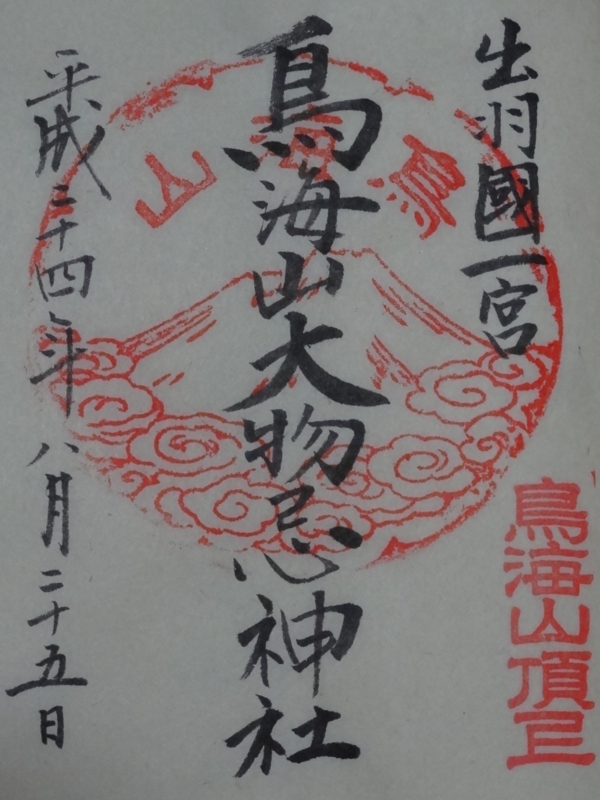 出羽國一宮
鳥海山頂上
鳥海山大物忌神社
鳥海山
平成二十四年八月二十五日